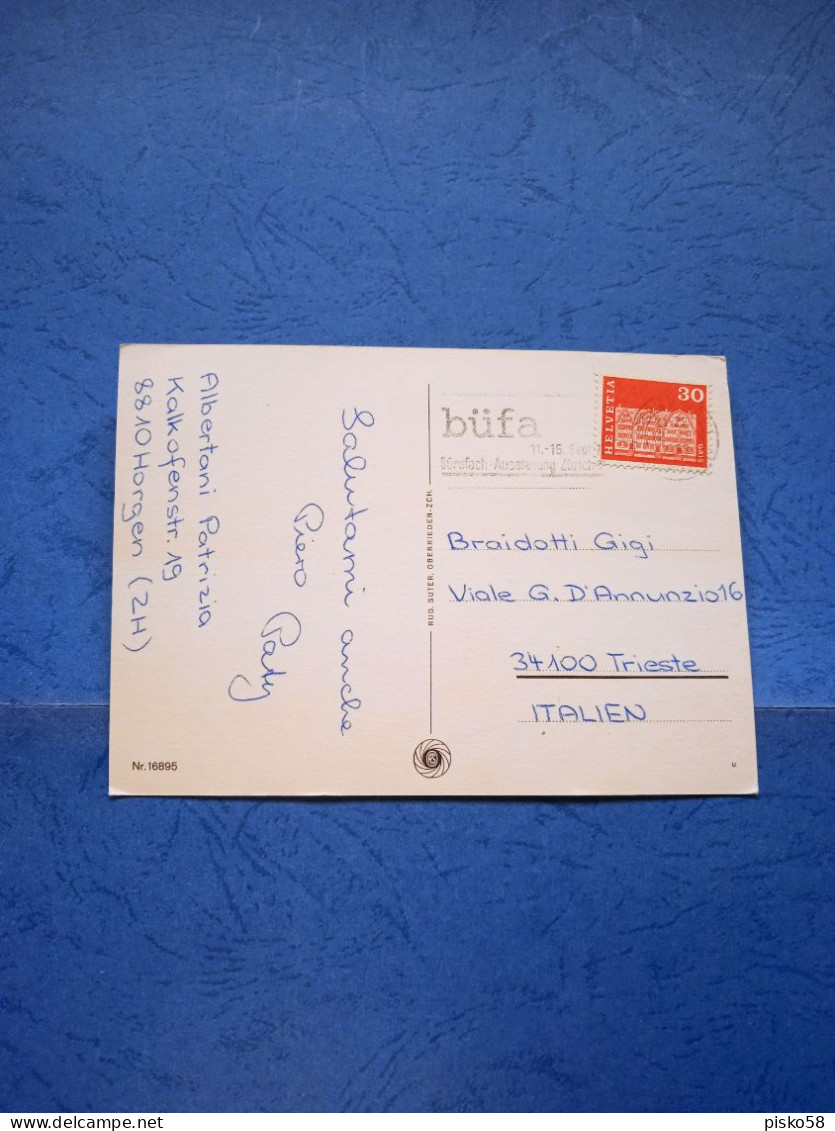 Albertani Patrizia
Kalkofenstr. 19
8810 Horgen (ZH)
Salutami anche
Piero
Paty
RUD. SUTER, OBERRIEDEN-ZCH.
büfa
11.-15. Sept.
Bürofach-Ausstellung Zürich
HELVETIA
30
GAIS
Braidotti Gigi
Viale G. D'Annunzio 16
34100 Trieste
ITALIEN
Nr. 16895
pisko58